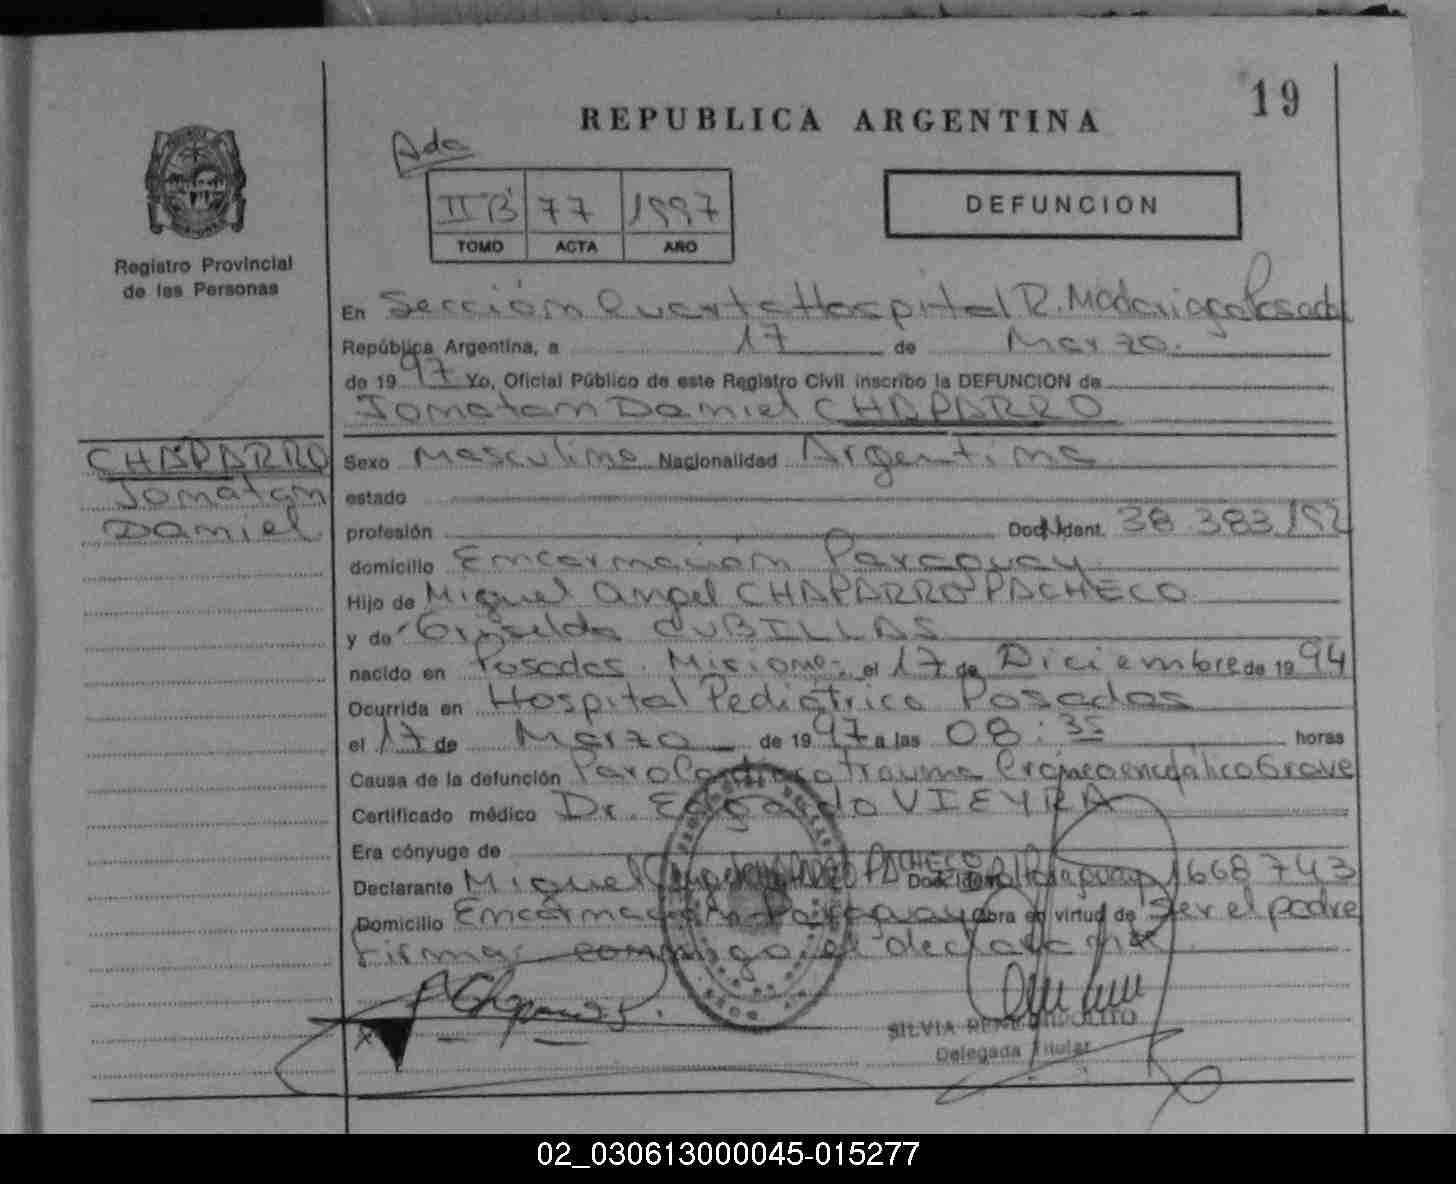 19
REPUBLICA ARGENTINA
Ada
IIB 77 1997
TOMO ACTA AÑO
DEFUNCION
Registro Provincial
de las Personas
En Sección Cuarta Hospital R. Madariaga Posadas
República Argentina, a 17 de Marzo.
de 1997 Yo, Oficial Público de este Registro Civil inscribo la DEFUNCION de
Jonatan Daniel CHAPARRO
CHAPARRO
Jonatan
Daniel
Sexo Masculino Nacionalidad Argentina
estado
profesión Doc. Ident. 38 383 152
domicilio Encarnación Paraguay
Hijo de Miguel Angel CHAPARRO PACHECO
y de Griselda CUBILLAS
nacido en Posadas. Misiones el 17 de Diciembre de 1994
Ocurrida en Hospital Pediátrico Posadas
el 17 de Marzo de 1997 a las 08:35 horas
Causa de la defunción Paro Cardiaco trauma Craneoencefálico Grave
Certificado médico Dr. Edgardo VIEYRA
Era cónyuge de
Declarante Miguel Angel CHAPARRO PACHECO Doc. Ident. Paraguay 1668743
Domicilio Encarnación Paraguay obra en virtud de ser el padre
Firma conmigo el declarante
SILVIA RENE HIPOLITO
Delegada Titular
02_030613000045-015277